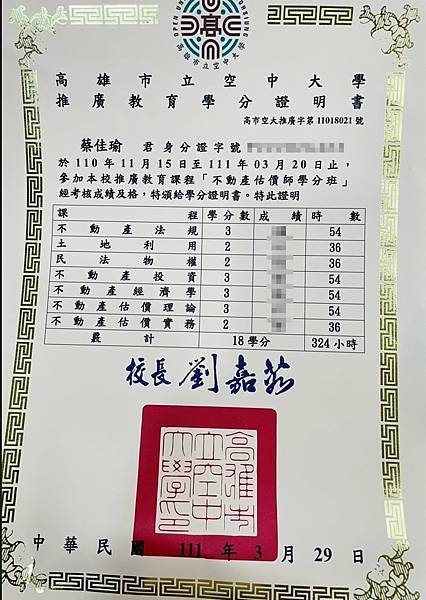 高雄市立空中大學
高雄市立空中大學
推廣教育學分證明書
高市空大推廣字第11018021號
蔡佳瑜 君 身分證字號
於 110 年 11 月 15 日至 111 年 03 月 20 日止，
參加本校推廣教育課程「不動產估價師學分班」
經考核成績及格，特頒給學分證明書。特此證明
課程 學分數 成績 時數
不動產法規 3 54
土地利用 2 36
民法物權 2 36
不動產投資 3 54
不動產經濟學 3 54
不動產估價理論 3 54
不動產估價實務 2 36
總計 18學分 324小時
校長 劉嘉茹
高雄市立空中大學印
中華民國 111 年 3 月 29 日